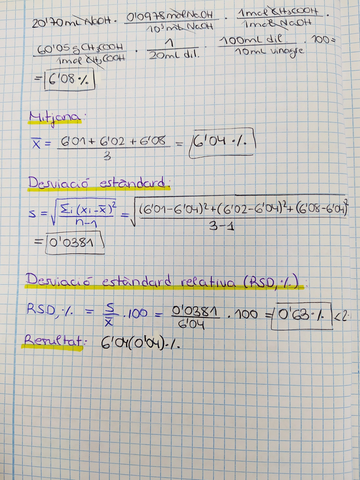 20'70 mL NaOH · 0'0978 mol NaOH / 10³ mL NaOH · 1 mol CH₃COOH / 1 mol NaOH ·
60'05 g CH₃COOH / 1 mol CH₃COOH · 1 / 20 mL dil. · 100 mL dil / 10 mL vinagre · 100 =
= 6'08 %
Mitjana:
x̄ = 6'01 + 6'02 + 6'08 / 3 = 6'04 %
Desviació estàndard:
s = √(Σᵢ(xᵢ - x̄)² / n-1) = √((6'01-6'04)² + (6'02-6'04)² + (6'08-6'04)² / 3-1)
= 0'0381
Desviació estàndard relativa (RSD, %)
RSD, % = s / x̄ · 100 = 0'0381 / 6'04 · 100 = 0'63 % < 2
Resultat: 6'04(0'04) %